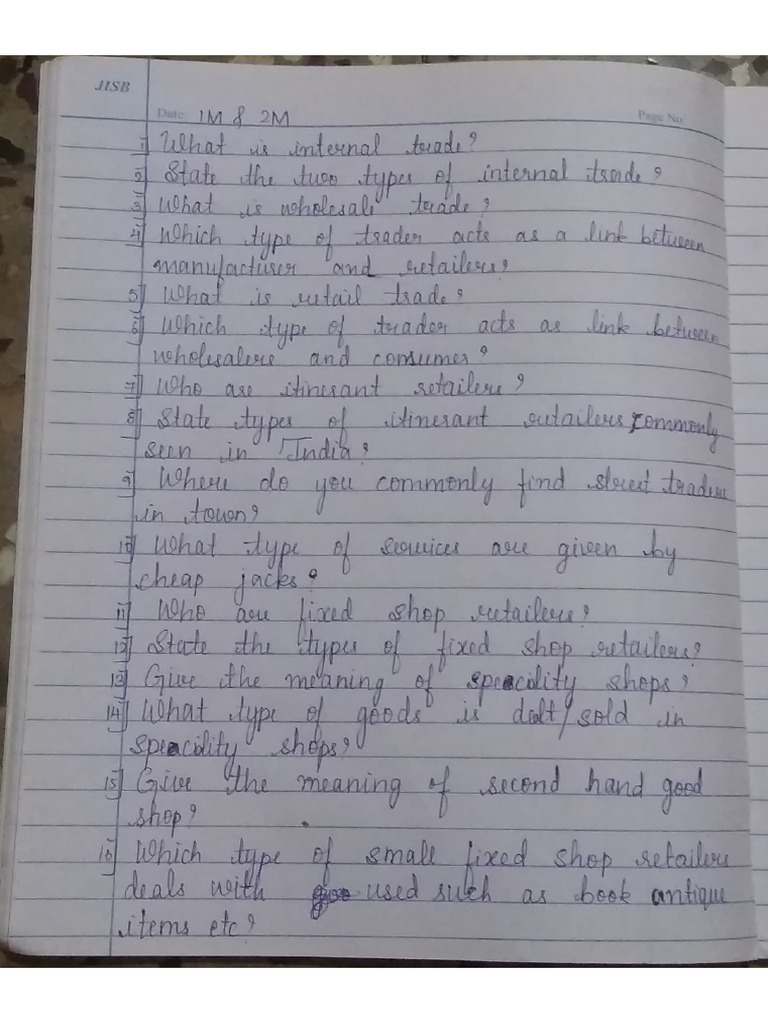 JISB
Date: 1M & 2M Page No:
1] What is internal trade?
2] State the two types of internal trade?
3] What is wholesale trade?
4] Which type of trader acts as a link between
manufactuser and retailers?
5] What is retail trade?
6] Which type of trader acts as link between
wholesalers and consumer?
7] Who are itinerant retailers?
8] State types of itinerant retailers commonly
seen in India?
9] Where do you commonly find street traders
in town?
10] What type of services are given by
cheap jacks?
11] Who are fixed shop retailers?
12] State the types of fixed shop retailers?
13] Give the meaning of speacility shops?
14] What type of goods is dealt/sold in
speacility shops?
15] Give the meaning of second hand good
shop?
16] Which type of small fixed shop retailers
deals with used such as book antique
items etc?